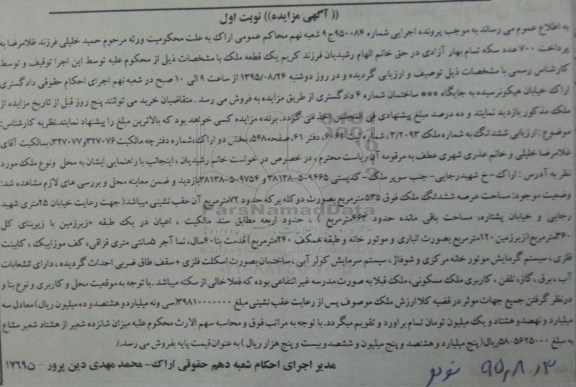 (( آگهی مزایده)) نوبت اول
به اطلاع عموم می رساند به موجب پرونده اجرایی شماره ۹۵۰۰۸۴ج۹ شعبه نهم محاکم عمومی اراک به علت محکومیت ورثه مرحوم حمید خلیلی فرزند غلامرضا به
پرداخت ۷۰۰ عدد سکه تمام بهار آزادی در حق خانم الهام رشیدیان فرزند کریم یک قطعه ملک با مشخصات ذیل از محکوم علیه توسط این اجرا توقیف و توسط
کارشناس رسمی با مشخصات ذیل توصیف و ارزیابی گردیده و در روز دوشنبه ۱۳۹۵/۰۸/۲۴ از ساعت ۹ الی ۱۰ صبح در شعبه نهم اجرای احکام حقوقی دادگستری
اراک خیابان هپکو نرسیده به جایگاه *** ساختمان شماره ۴ دادگستری از طریق مزایده به فروش می رسد . متقاضیان خرید می توانند پنج روز قبل از تاریخ مزایده از
ملک مذکور بازدید نمایند و ده درصد مبلغ پیشنهادی فی المجلس اخذ می گردد. برنده مزایده کسی خواهد بود که بالاترین مبلغ را پیشنهاد نمایند.نظریه کارشناس:
موضوع :ارزیابی ششدانگ به شماره ملک ۳/۲۰۹۳، شماره ثبت دفتر ۶۱، صفحه۵۴۸، بخش دو اراک،شماره دفترچه مالکیت۳۲۷۰۷۶و۳۲۷۰۷۷، بمالکیت آقای
غلامرضا خلیلی و خانم عذری شهری عطف به مرقومه آن ریاست محترم، در خصوص درخواست خانم رشیدیان ، اینجانب با راهنمایی ایشان به محل ونوع ملک مورد
نظر به آدرس : اراک -خ شهیدرجایی- جنب سوپر ملک- کدپستی ۹۴۶۵-۳۸۱۳۸و۹۷۵۴-۳۸۱۳۸بازدید و ضمن معاینه محل و بررسی های لازم مشاهده شد:
وضعیت موجود: مساحت عرصه ششدانگ ملک فوق ۵۳۵مترمربع بصورت دو کله بر که حدود ۷۲مترمربع آن عقب نشینی میباشد( جهت رعایت خیابان ۲۵متری شهید
رجایی و خیابان پشتاره، مساحت باقی مانده حدود ۴۶۳مترمربع ) ، حدود اربعه مطابق سند مالکیت ، اعیان در یک طبقه +زیرزمین با زیربنای کل
۳۶۰مترمربع(زیرزمین۱۲۰مترمربع بصورت انباری و موتور خانه و طبقه همکف ۲۴۰مترمربع)قدمت بنا۴۰سال،نما آجر ۵سانتی متری قزاقی، کف موزاییک ، کابینت
فلزی، سیستم گرمایش موتور خانه مرکزی و شوفاژ ، سیستم سرمایش کولر آبی ، ساختمان بصورت اسکلت فلزی + سقف طاق ضربی احداث گردیده ، دارای انشعابات
آب ،برق ،گاز، تلفن ، کاربری ملک مسکونی، ملک قبلا به صورت مدرسه غیر انتفاعی بوده که فعلا خالی از سکنه میباشد. با توجه به موقعیت محل و کاربری و نوع بنا و
درنظر گرفتن جمیع جهات موثر در قضیه کلا ارزش ملک موصوف پس از رعایت عقب نشینی مبلغ میلیون ریال)معادل سه
میلیارد و نهصد و هشتاد و یک میلیون تومان تمام برآورد و تقویم میگردد. با توجه به مراتب فوق و محاسبه سهم الارث محکوم علیه میزان شانزده شعیر از هشتاد شعیر مشاع
به مبلغ ۵۸۰۵۶۲۵۰۰۰ریال(پنج میلیارد و هشتصد و پنج میلیون و ششصد و بیست و پنج هزار ریال) به عنوان قیمت پایه بفروش می رسد./
مدیر اجرای احکام شعبه دهم حقوقی اراک- محمد مهدی دین پرور -ن۱۷۶۹
۹۵,۸,۳
ParsNamadData